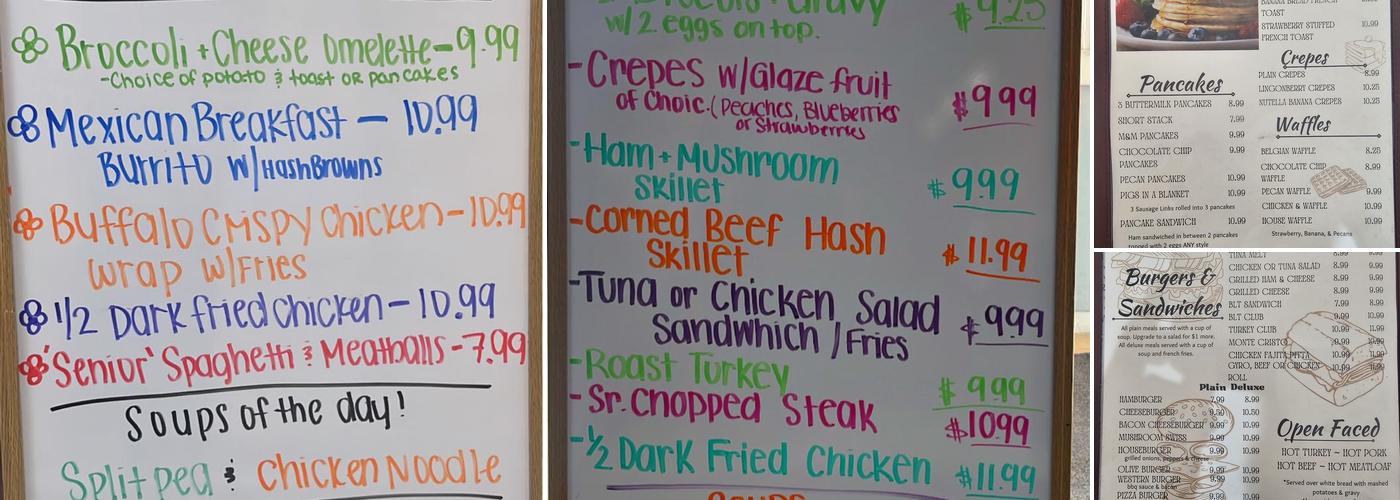 Broccoli + Cheese Omelette - 9.99
- Choice of potato & toast OR pancakes
Mexican Breakfast - 10.99
Burrito w/HashBrowns
Buffalo Crispy Chicken - 10.99
Wrap w/Fries
1/2 Dark fried Chicken - 10.99
'Senior' Spaghetti & Meatballs - 7.99
Soups of the day!
Split pea & Chicken Noodle
Gravy $9.25
w/2 eggs on top.
- Crepes w/Glaze fruit $9.99
of Choic. (Peaches, Blueberries
or Strawberries
- Ham + Mushroom
Skillet $9.99
- Corned Beef Hash
Skillet $11.99
- Tuna or Chicken Salad
Sandwhich / Fries $9.99
- Roast Turkey $9.99
- Sr. Chopped Steak $10.99
- 1/2 Dark Fried Chicken $11.99
Pancakes
3 BUTTERMILK PANCAKES 8.99
SHORT STACK 7.99
M&M PANCAKES 9.99
CHOCOLATE CHIP 9.99
PANCAKES
PECAN PANCAKES 10.99
PIGS IN A BLANKET 10.99
3 Sausage Links rolled into 3 pancakes
PANCAKE SANDWICH 10.99
Ham sandwiched in between 2 pancakes
topped with 2 eggs ANY style
BANANA BREAD FRENCH
TOAST
STRAWBERRY STUFFED 10.99
FRENCH TOAST
Crepes
PLAIN CREPES 8.99
LINGONBERRY CREPES 10.25
NUTELLA BANANA CREPES 10.25
Waffles
BELGIAN WAFFLE 8.25
CHOCOLATE CHIP 8.99
WAFFLE
PECAN WAFFLE 9.99
CHICKEN & WAFFLE 10.99
HOUSE WAFFLE 10.99
Strawberry, Banana, & Pecans
Burgers &
Sandwiches
All plain meals served with a cup of
soup. Upgrade to a salad for $1 more.
All deluxe meals served with a cup of
soup and french fries.
TUNA MELT 8.99 9.99
CHICKEN OR TUNA SALAD 8.99 9.99
GRILLED HAM & CHEESE 8.99 9.99
GRILLED CHEESE 8.99
BLT SANDWICH 7.99 8.99
BLT CLUB 9.99 10.99
TURKEY CLUB 10.99 11.99
MONTE CRISTO 10.99
CHICKEN FAJITA PITTA 10.99 11.99
GYRO, BEEF OR CHICKEN 10.99 11.99
ROLL
Plain Deluxe
HAMBURGER 7.99 8.99
CHEESEBURGER 9.50 10.50
BACON CHEESEBURGER 9.99 10.99
MUSHROOM SWISS 9.99 10.99
HOUSEBURGER 9.99 10.99
grilled onions, peppers & cheese
OLIVE BURGER 9.99 10.99
WESTERN BURGER 9.99 10.99
bbq sauce & bacon
PIZZA BURGER 9.99 10.99
Open Faced
HOT TURKEY ~ HOT PORK
HOT BEEF ~ HOT MEATLOAF
*Served over white bread with mashed
potatoes & gravy